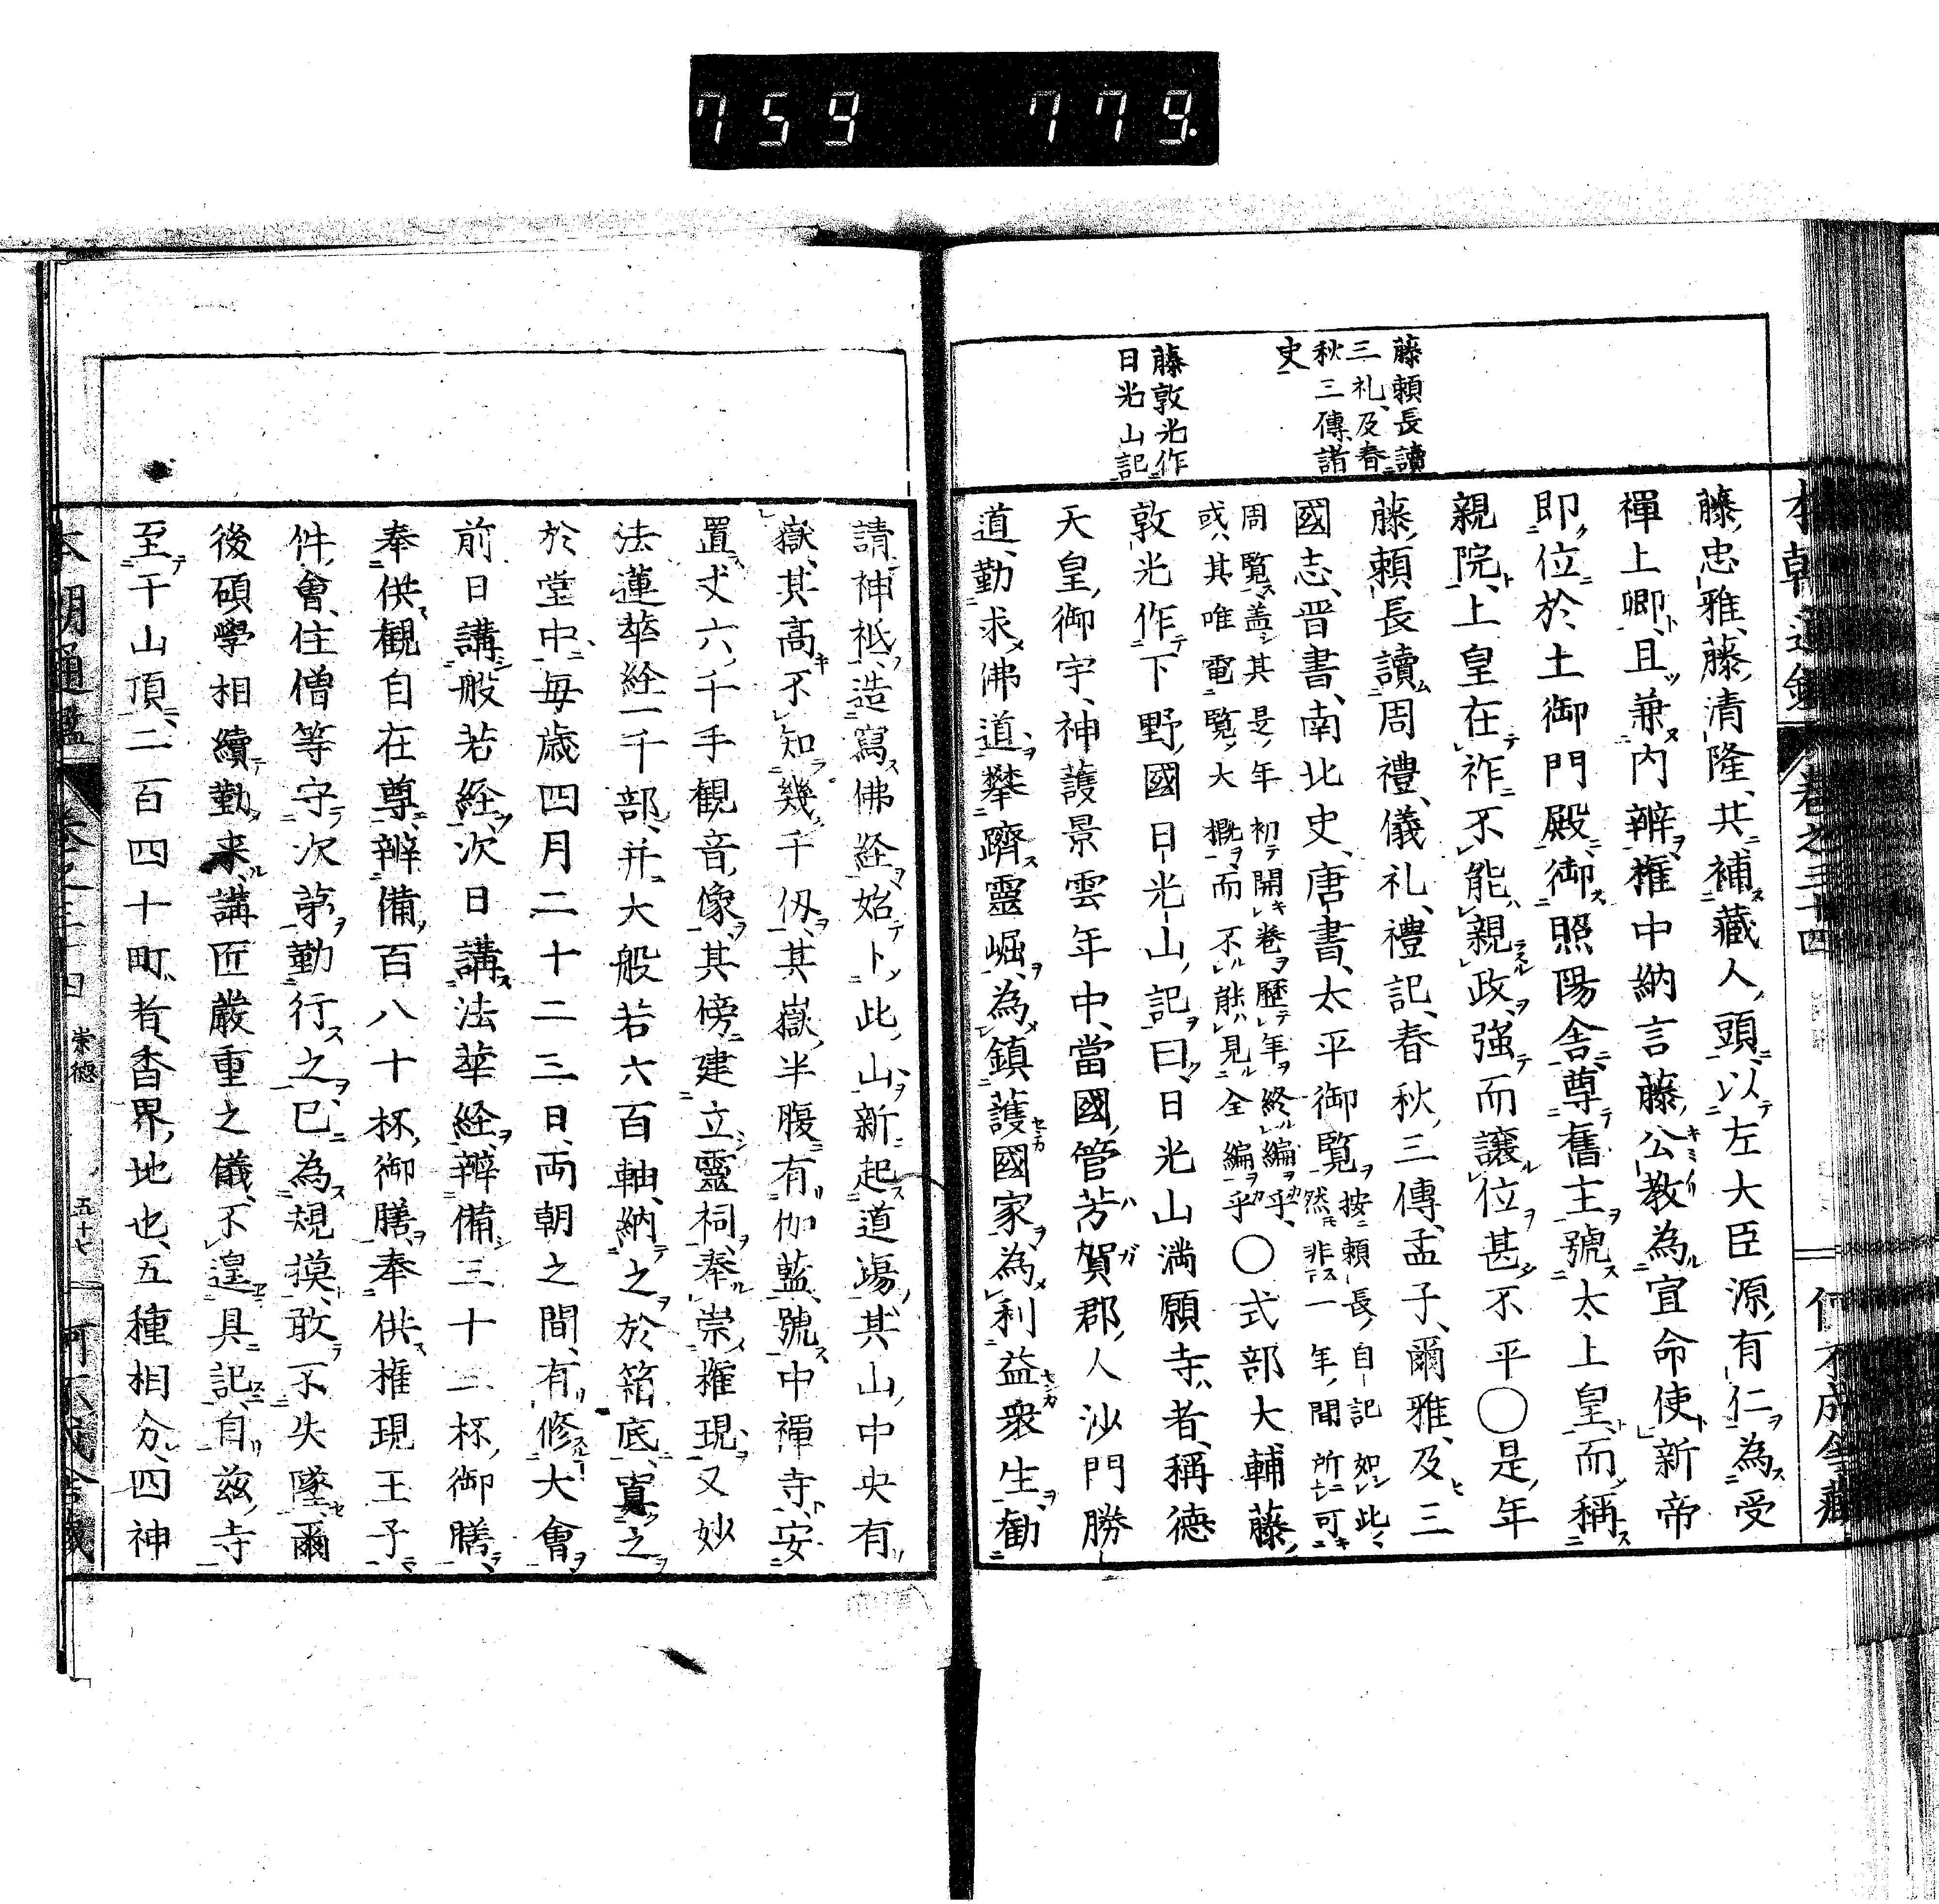 759 779.
藤頼長讀
三礼及春
秋三傳諸
史
藤敦光作
日光山記
藤忠雅藤清隆共補藏人頭以左大臣源有仁為受
禪上卿且兼内辨権中納言藤公教為宣命使新帝
即位於土御門殿御照陽舎尊舊主號太上皇而稱
親院上皇在祚不能親政强而讓位甚不平〇是年
藤頼長讀周禮儀礼禮記春秋三傳孟子爾雅及三
國志晋書南北史唐書太平御覧按頼長自記如此
然非一年間所可
周覧盖其是年初開巻歴年終編乎
或其唯電覧大概而不能見全編乎〇式部大輔藤
敦光作下野國日光山記曰日光山満願寺者稱德
天皇御宇神護景雲年中當國管芳賀郡人沙門勝
道勤求佛道攀躋靈崛為鎮護國家為利益衆生勧
請神祗造寫佛経始卜此山新起道場其山中央有
嶽其高不知幾千仭其嶽半腹有伽藍號中禪寺安
置丈六千手観音像其傍建立靈祠奉崇権現又妙
法蓮華経一千部并大般若六百軸納之於箱底寘之
於堂中毎歳四月二十二三日両朝之間有修大會
前日講般若経次日講法華経辨備三十二杯御膳
奉供観自在尊辨備百八十杯御膳奉供権現王子
件會住僧等守次第勤行之已為規摸敢不失墜爾
後碩學相續勤來講匠嚴重之儀不遑具記自兹寺
至于山頂二百四十町者香界地也五種相分四神
崇德
五十七